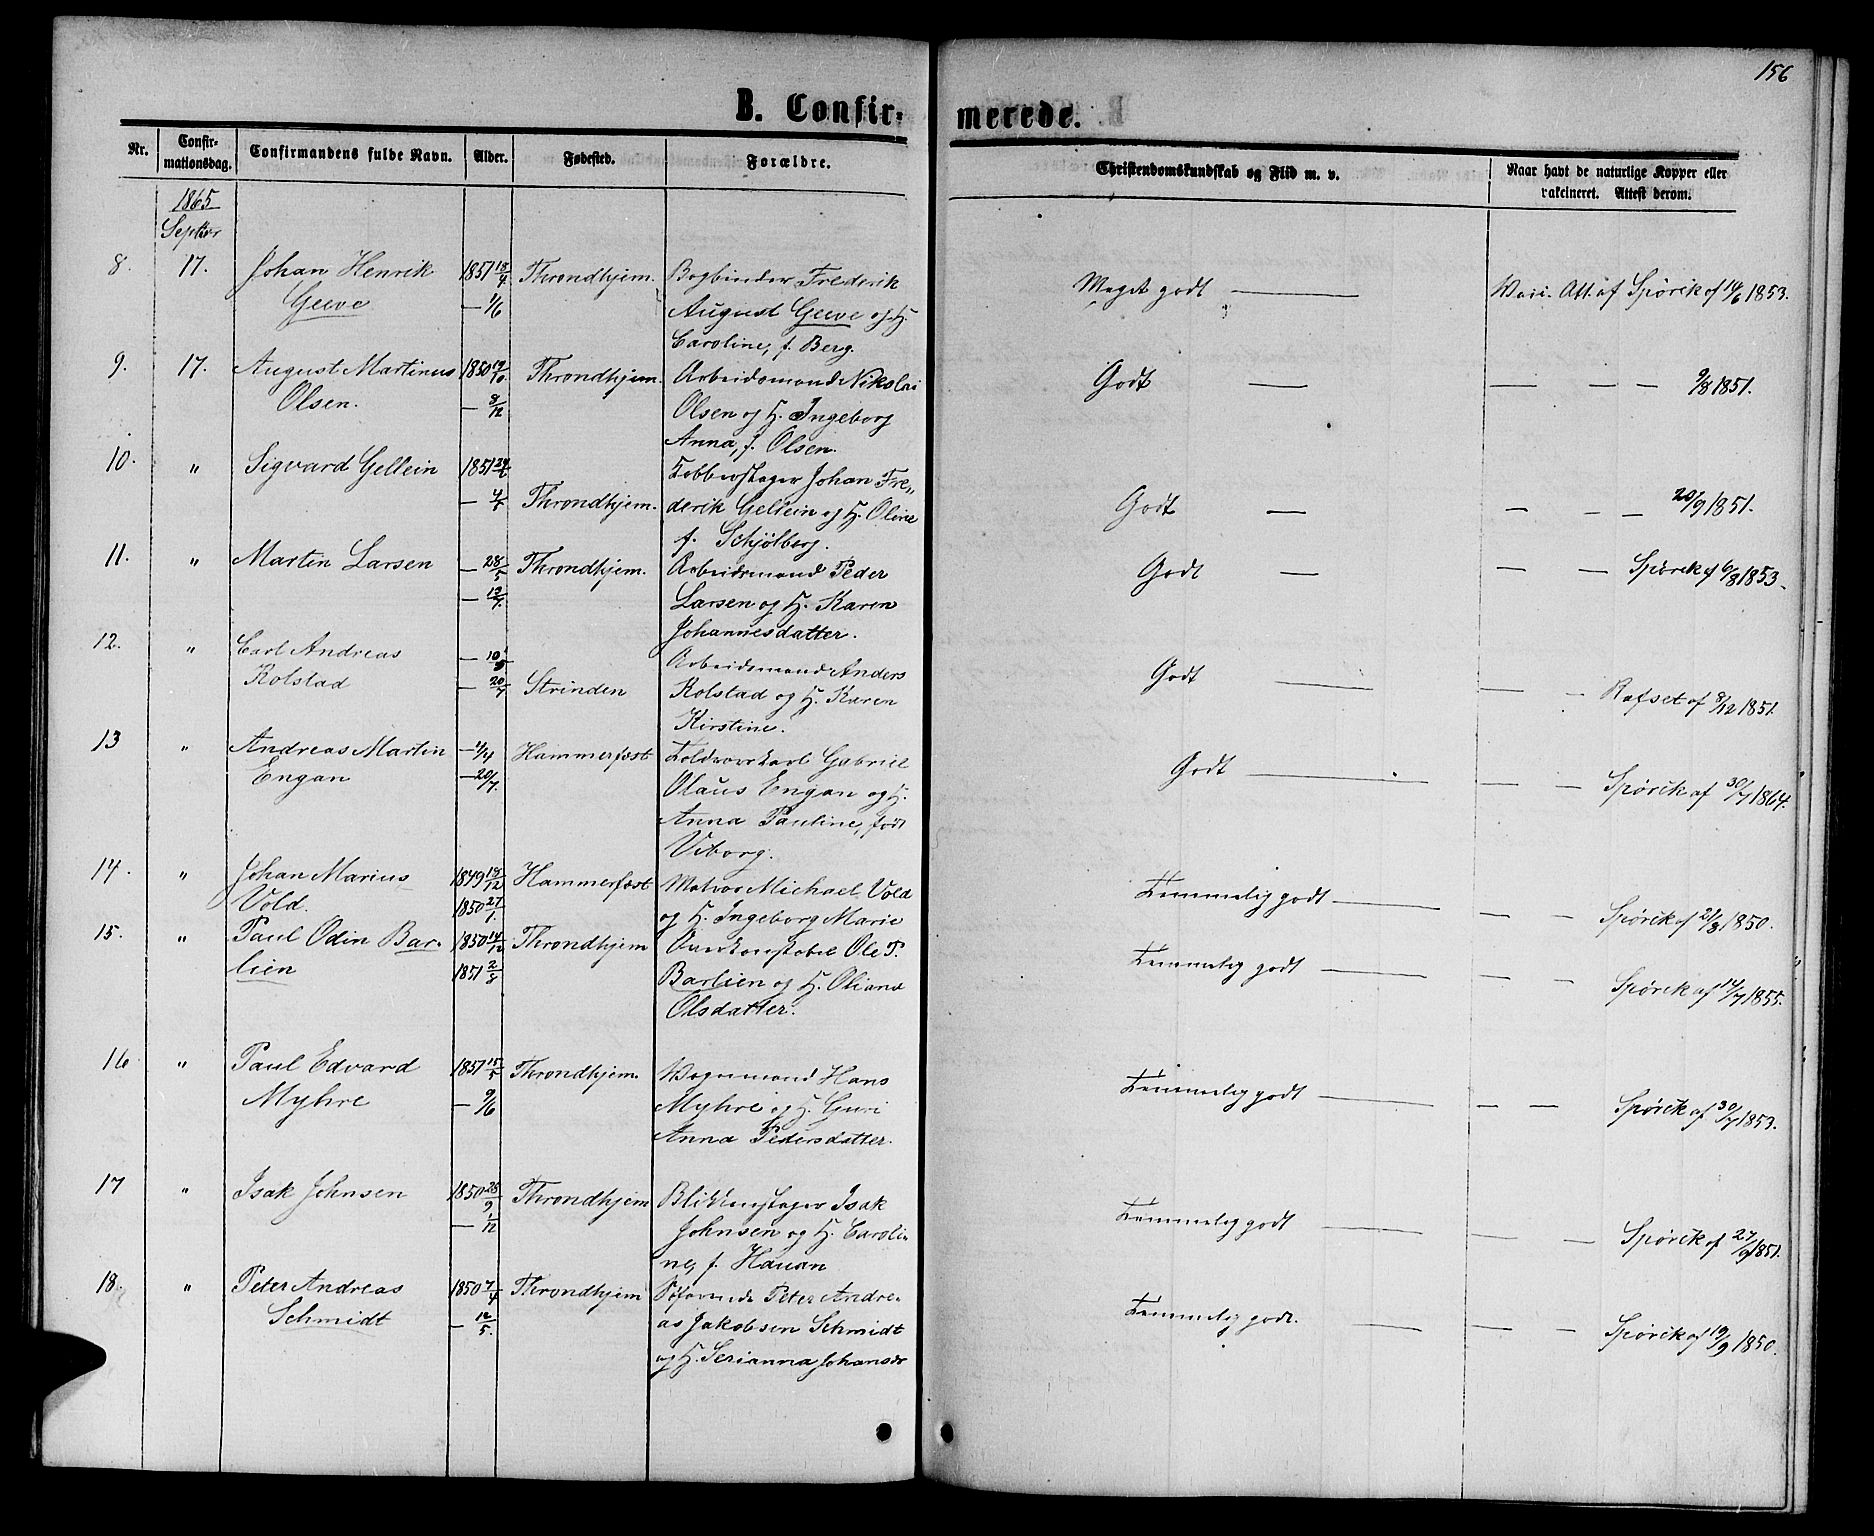 156
B. Confir- merede.
Nr. Confir-mationsdag. Confirmandens fulde Navn. Alder. Fødested. Forældre. Christendomskundskab og Flid m. v. Naar havt de naturlige Kopper eller vakcineret. Attest derom.
1865
Septbr
8. 17. Johan Henrik 1851 18/4 Throndhjem. Bogbinder Frederik Meget godt — Vacc. Att. af Spørck af 14/6 1853.
Geeve — 1/6 August Geeve og H.
Caroline, f. Berg.
9. 17. August Martinus 1850 19/10 Throndhjem. Arbeidsmand Nikolai Godt — — — — 9/8 1851.
Olsen. — 8/12 Olsen og H. Ingeborg
Anna, f. Olsen.
10. " Sigvard Gellein 1851 Kobberslager Johan Fre„
— Throndhjem. derik Gellein og H. Oline Godt — — — — 20/9 1851.
f. Schjølberg.
11. " Martin Larsen — 28/5 Throndhjem. Arbeidsmand Peder Godt — — — Spørck af 6/8 1853.
— 13/7. Larsen og H. Karen
Johannesdatter.
12. " Carl Andreas — 10/5 Arbeidsmand Anders Godt — — —
Kolstad — 20/7 Strinden Kolstad og H. Karen Rafset af 8/12 1851.
Kirstine.
13 " Andreas Martin — 11/4 Hammerfæst Toldroerkarl Gabriel Godt — — —
Engan — 20/7. Olaus Engan og H. Spørck af 30/7 1864.
Anna Pauline, født
Viborg.
14. " Johan Marius 1849 18/12 Hammerfæst Matros Michael Vold Temmelig godt — — —
Vold. 1850 27/1. og H. Ingeborg Marie Spørck af 21/8 1850.
15. " Paul Odin Bar- 1850 14/12 Throndhjem Ole P. Temmelig godt — — —
lien 1851 2/8 Barlien og H. Oliana Spørck af 14/7 1855.
Olsdatter.
16 " Paul Edvard 1851 15/5 Throndhjem. Vognmand Hans Temmelig godt — — —
Myhre — 9/6 Myhre og H. Guri Spørck af 30/7 1853.
Anna Pedersdatter.
17 " Isak Johnsen 1850 28/9 Throndhjem Blikkenslager Isak Temmelig godt — — —
— 1/12 Johnsen og H. Caroli- Spørck af 27/9 1851.
ne, f. Hauan
18. " Peter Andreas 1850 7/4 Throndhjem Søfarende Peter Andre- Temmelig godt. — — —
Schmidt — 12/5. as Jakobsen Schmidt Spørck af 19/9 1850.
og H. Serianna Johansdr